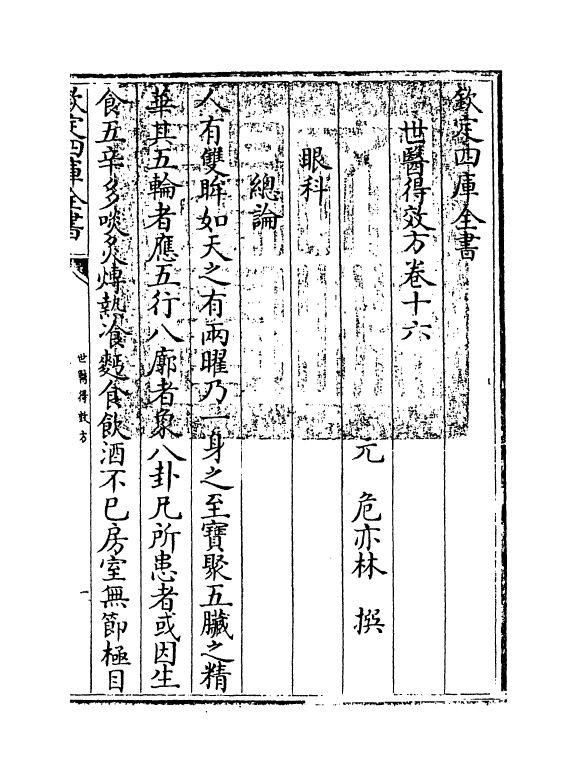 欽定四庫全書
世醫得效方卷十六
元 危亦林 撰
眼科
總論
人有雙眸如天之有兩曜乃一身之至寶聚五臟之精
華其五輪者應五行八廓者象八卦凡所患者或因生
食五辛多啖炙煿熱飡麪食飲酒不已房室無節極目
欽定四庫全書
世醫得效方
一